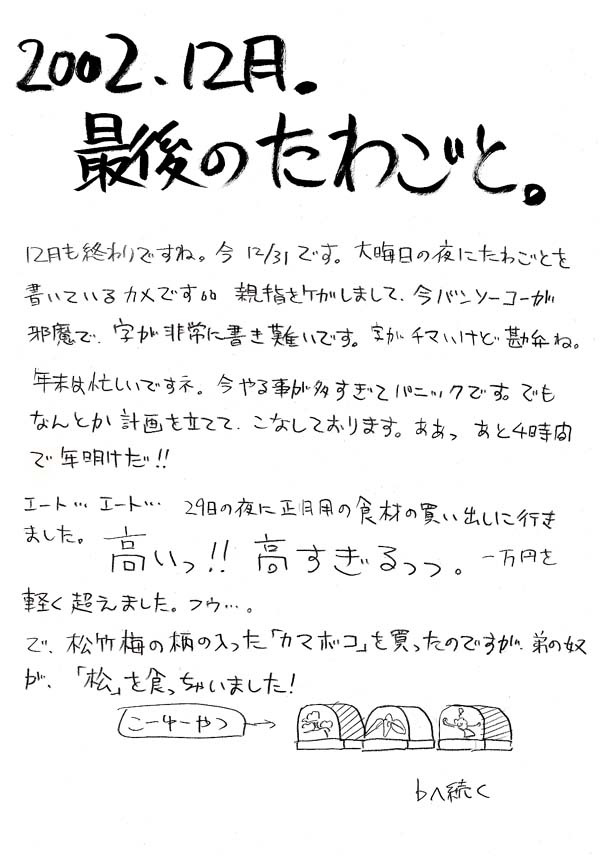 2002、12月。
最後のたわごと。
12月も終わりですね。今 12/31です。大晦日の夜にたわごとを
書いているカメです。。親指をケガしまして、今バンソーコーが
邪魔で、字が非常に書き難いです。字がチマいけど勘弁ね。
年末は忙しいですネ。今やる事が多すぎてパニックです。でも
なんとか計画を立てて、こなしております。ああっ あと4時間
で年明けだ!!
エート… エート… 29日の夜に正月用の食材の買い出しに行き
ました。高いっ!! 高すぎるっっ。一万円を
軽く超えました。フゥ…。
で、松竹梅の柄の入った「カマボコ」を買ったのですが、弟の奴
が、「松」を食っちゃいました!
こーゆーやつ→
bへ続く